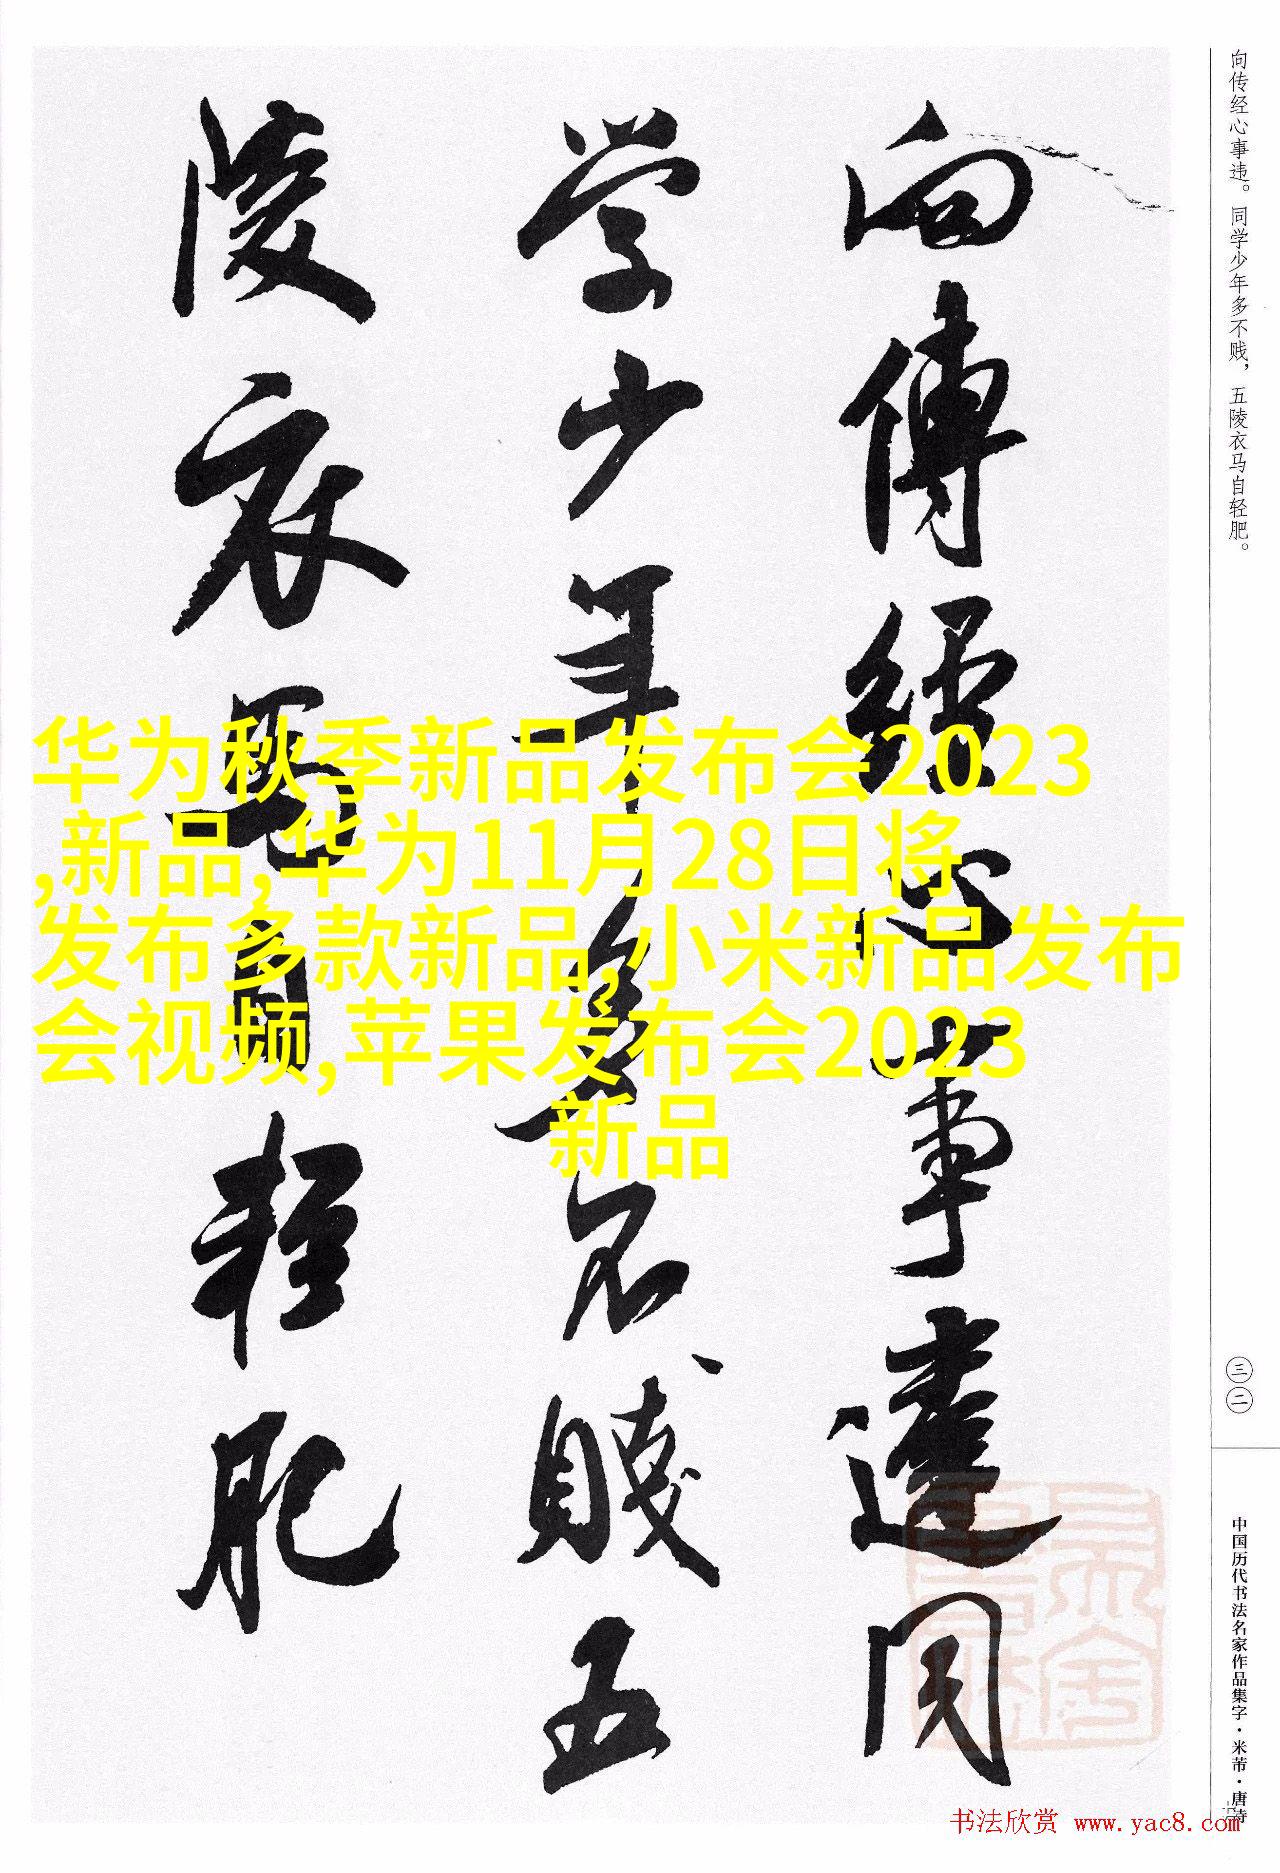 向传经心事违。同学少年多不贱，五陵衣马自轻肥。
向傳經心事違同
學少年多不賤五
陵衣馬自輕肥
华为秋季新品发布会2023
,新品,华为11月28日将
发布多款新品,小米新品发布
会视频,苹果发布会2023
新品
三二
中国历代书法名家作品集字·米芾·唐诗
书法欣赏 www.yac8.com